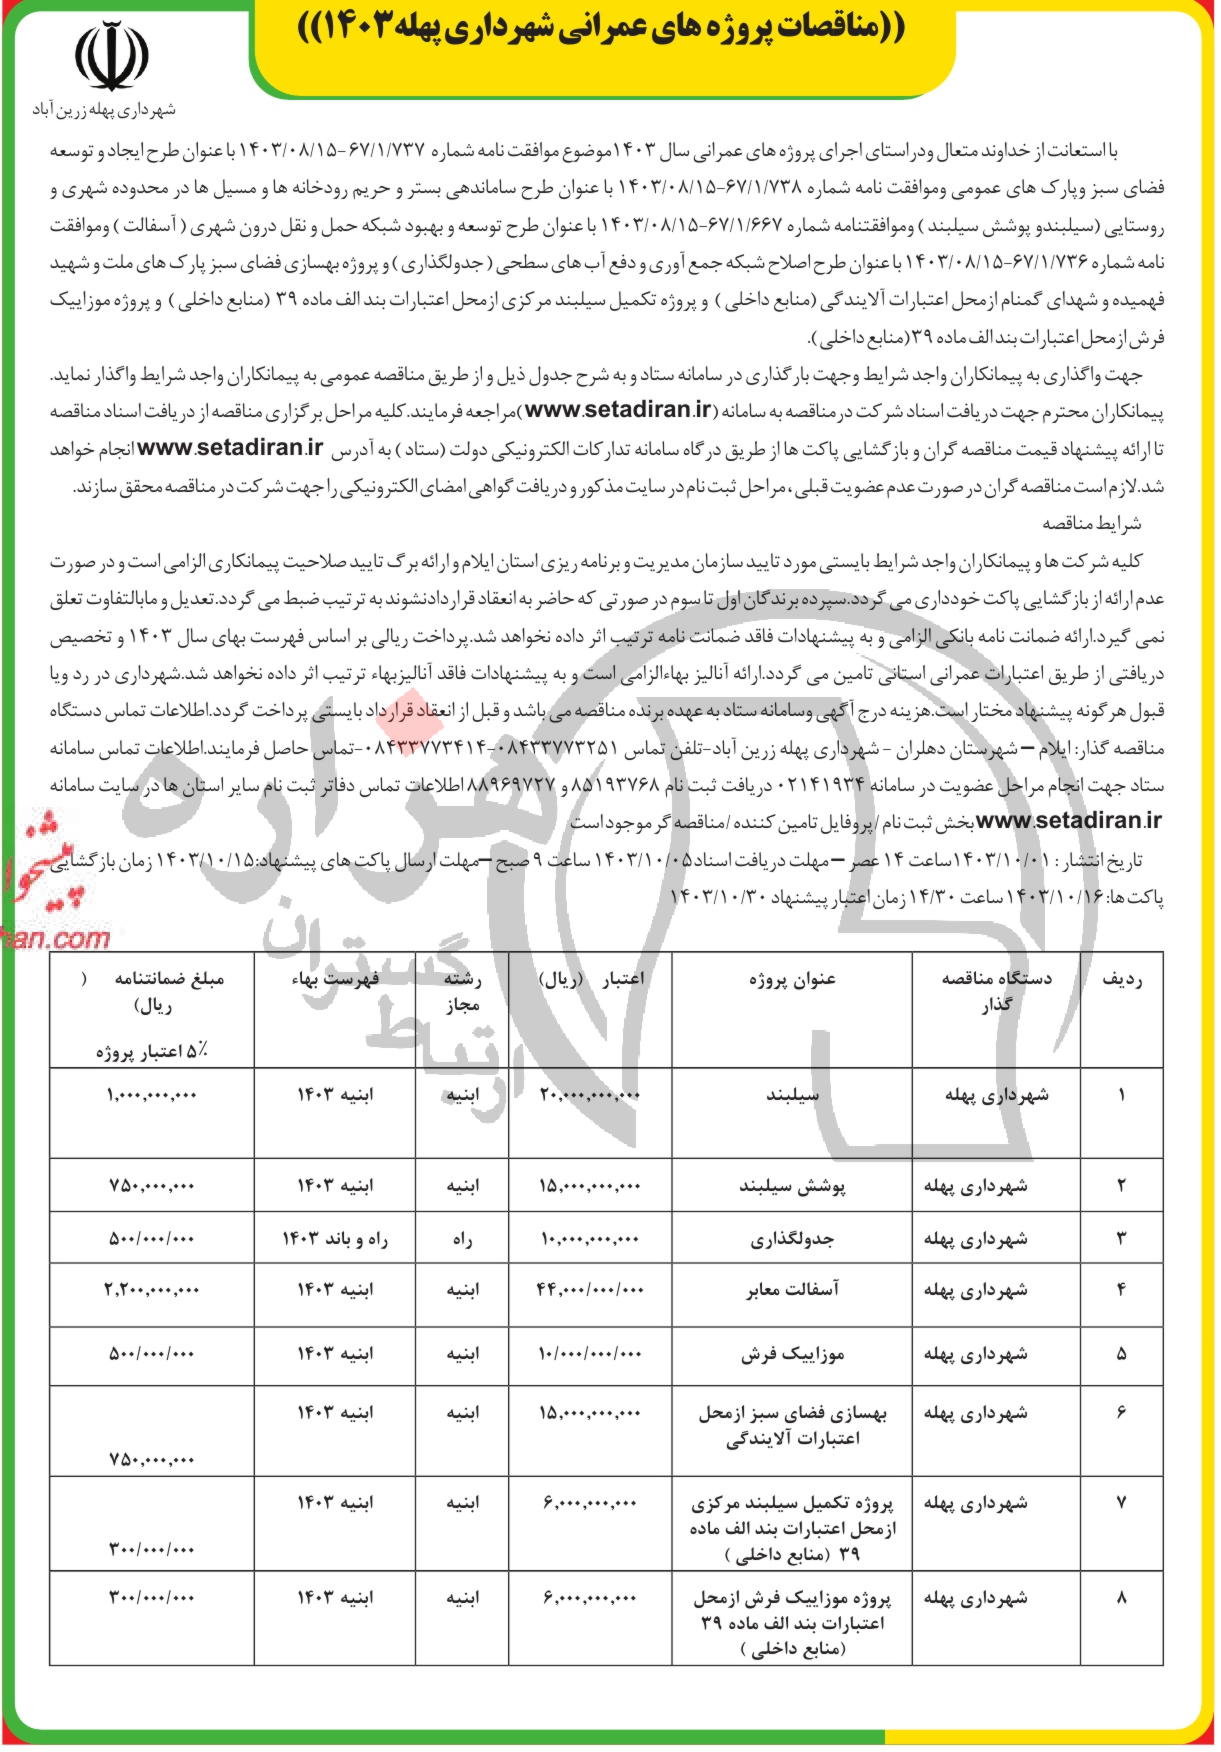 ((مناقصات پروژه های عمرانی شهرداری پهله۱۴۰۳))
شهرداری پهله زرین آباد
با استعانت از خداوند متعال ودر استای اجرای پروژه های عمرانی سال ۱۴۰۳موضوع موافقت نامه شماره ۶۷/۱/۷۳۷-۱۴۰۳/۰۸/۱۵ با عنوان طرح ایجاد و توسعه
فضای سبز وپارک های عمومی وموافقت نامه شماره ۶۷/۱/۷۳۸-۱۴۰۳/۰۸/۱۵ با عنوان طرح ساماندهی بستر و حریم رودخانه ها و مسیل ها در محدوده شهری و
روستایی (سیلبندو پوشش سیلبند ) وموافقتنامه شماره ۶۷/۱/۶۶۷-۱۴۰۳/۰۸/۱۵ با عنوان طرح توسعه و بهبود شبکه حمل و نقل درون شهری ( آسفالت ) وموافقت
نامه شماره ۶۷/۱/۷۳۶-۱۴۰۳/۰۸/۱۵ با عنوان طرح اصلاح شبکه جمع آوری و دفع آب های سطحی ( جدولگذاری ) و پروژه بهسازی فضای سبز پارک های ملت و شهید
فهمیده و شهدای گمنام ازمحل اعتبارات آلایندگی (منابع داخلی ) و پروژه تکمیل سیلبند مرکزی ازمحل اعتبارات بند الف ماده ۳۹ (منابع داخلی ) و پروژه موزاییک
فرش ازمحل اعتبارات بند الف ماده ۳۹(منابع داخلی).
جهت واگذاری به پیمانکاران واجد شرایط وجهت بارگذاری در سامانه ستاد و به شرح جدول ذیل و از طریق مناقصه عمومی به پیمانکاران واجد شرایط واگذار نماید.
پیمانکاران محترم جهت دریافت اسناد شرکت در مناقصه به سامانه (www.setadiran.ir)مراجعه فرمایند.کلیه مراحل برگزاری مناقصه از دریافت اسناد مناقصه
تا ارائه پیشنهاد قیمت مناقصه گران و بازگشایی پاکت ها از طریق درگاه سامانه تدارکات الکترونیکی دولت (ستاد ) به آدرس www.setadiran.ir انجام خواهد
شد.لازم است مناقصه گران در صورت عدم عضویت قبلی ، مراحل ثبت نام در سایت مذکور و دریافت گواهی امضای الکترونیکی را جهت شرکت در مناقصه محقق سازند.
شرایط مناقصه
کلیه شرکت ها و پیمانکاران واجد شرایط بایستی مورد تایید سازمان مدیریت و برنامه ریزی استان ایلام و ارائه برگ تایید صلاحیت پیمانکاری الزامی است و در صورت
عدم ارائه از بازگشایی پاکت خودداری می گردد.سپرده برندگان اول تا سوم در صورتی که حاضر به انعقاد قراردادنشوند به ترتیب ضبط می گردد.تعدیل و مابالتفاوت تعلق
نمی گیرد.ارائه ضمانت نامه بانکی الزامی و به پیشنهادات فاقد ضمانت نامه ترتیب اثر داده نخواهد شد.پرداخت ریالی بر اساس فهرست بهای سال ۱۴۰۳ و تخصیص
دریافتی از طریق اعتبارات عمرانی استانی تامین می گردد.ارائه آنالیز بهاءالزامی است و به پیشنهادات فاقد آنالیزبهاء ترتیب اثر داده نخواهد شد.شهرداری در رد ویا
قبول هرگونه پیشنهاد مختار است.هزینه درج آگهی وسامانه ستاد به عهده برنده مناقصه می باشد و قبل از انعقاد قرارداد بایستی پرداخت گردد.اطلاعات تماس دستگاه
مناقصه گذار: ایلام – شهرستان دهلران - شهرداری پهله زرین آباد-تلفن تماس ۰۸۴۳۳۷۷۳۲۵۱-۰۸۴۳۳۷۷۳۴۱۴-تماس حاصل فرمایند.اطلاعات تماس سامانه
ستاد جهت انجام مراحل عضویت در سامانه ۰۲۱۴۱۹۳۴ دریافت ثبت نام ۸۵۱۹۳۷۶۸ و ۸۸۹۶۹۷۲۷ اطلاعات تماس دفاتر ثبت نام سایر استان ها در سایت سامانه
www.setadiran.ir بخش ثبت نام /پروفایل تامین کننده /مناقصه گر موجود است
تاریخ انتشار : ۱۴۰۳/۱۰/۰۱ساعت ۱۴ عصر – مهلت دریافت اسناد۱۴۰۳/۱۰/۰۵ ساعت ۹ صبح – مهلت ارسال پاکت های پیشنهاد:۱۴۰۳/۱۰/۱۵ زمان بازگشایی
پاکت ها: ۱۴۰۳/۱۰/۱۶ ساعت ۱۴/۳۰ زمان اعتبار پیشنهاد ۱۴۰۳/۱۰/۳۰
هزاره
گستران
ارتباط
پیشخوان
han.com
ردیف دستگاه مناقصه گذار عنوان پروژه اعتبار (ریال) رشته مجاز فهرست بهاء مبلغ ضمانتنامه ( ریال) ۵٪ اعتبار پروژه
۱ شهرداری پهله سیلبند ۲۰,۰۰۰,۰۰۰,۰۰۰ ابنیه ابنیه ۱۴۰۳ ۱,۰۰۰,۰۰۰,۰۰۰
۲ شهرداری پهله پوشش سیلبند ۱۵,۰۰۰,۰۰۰,۰۰۰ ابنیه ابنیه ۱۴۰۳ ۷۵۰,۰۰۰,۰۰۰
۳ شهرداری پهله جدولگذاری ۱۰,۰۰۰,۰۰۰,۰۰۰ راه راه و باند ۱۴۰۳ ۵۰۰/۰۰۰/۰۰۰
۴ شهرداری پهله آسفالت معابر ۴۴,۰۰۰/۰۰۰/۰۰۰ ابنیه ابنیه ۱۴۰۳ ۲,۲۰۰,۰۰۰,۰۰۰
۵ شهرداری پهله موزاییک فرش ۱۰/۰۰۰/۰۰۰/۰۰۰ ابنیه ابنیه ۱۴۰۳ ۵۰۰/۰۰۰/۰۰۰
۶ شهرداری پهله بهسازی فضای سبز ازمحل اعتبارات آلایندگی ۱۵,۰۰۰,۰۰۰,۰۰۰ ابنیه ابنیه ۱۴۰۳ ۷۵۰,۰۰۰,۰۰۰
۷ شهرداری پهله پروژه تکمیل سیلبند مرکزی ازمحل اعتبارات بند الف ماده ۳۹ (منابع داخلی ) ۶,۰۰۰,۰۰۰,۰۰۰ ابنیه ابنیه ۱۴۰۳ ۳۰۰/۰۰۰/۰۰۰
۸ شهرداری پهله پروژه موزاییک فرش ازمحل اعتبارات بند الف ماده ۳۹ (منابع داخلی ) ۶,۰۰۰,۰۰۰,۰۰۰ ابنیه ابنیه ۱۴۰۳ ۳۰۰/۰۰۰/۰۰۰